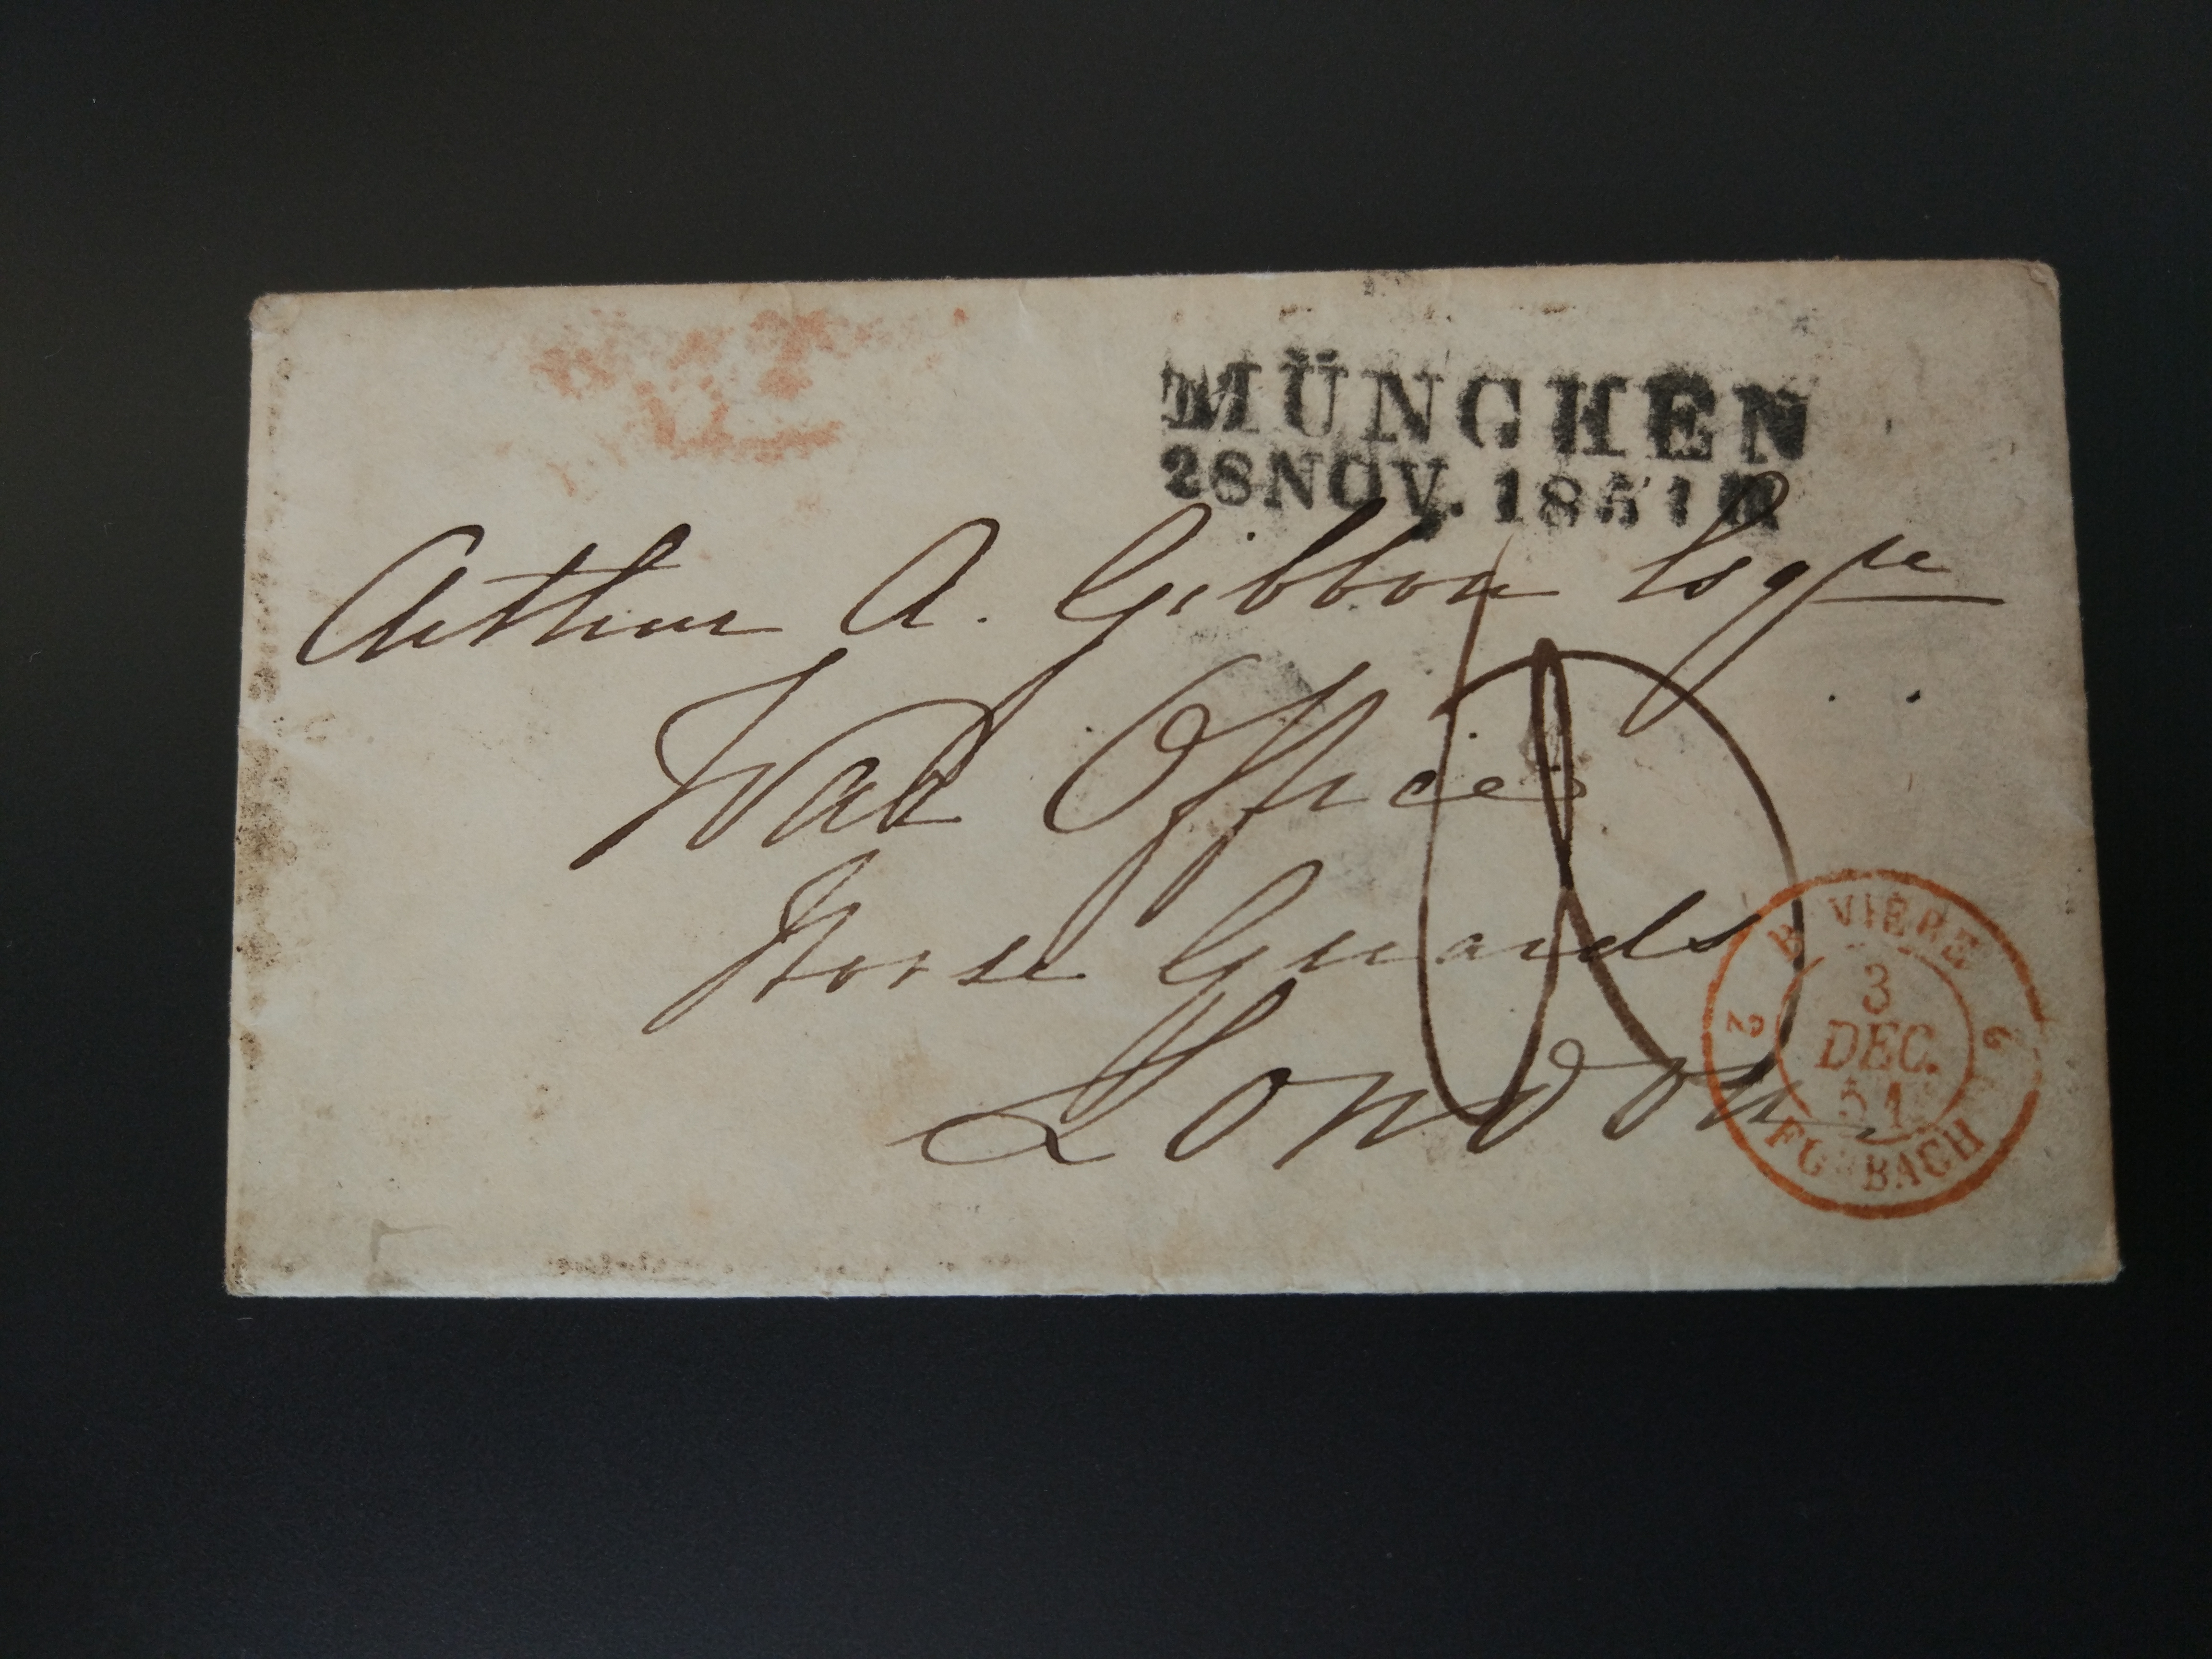 MÜNCHEN
28 NOV. 1851
Arthur A. Gibbon Esqre
War Office
Horse Guards
London
BAVIERE
2 2
3
DEC.
51
FORBACH